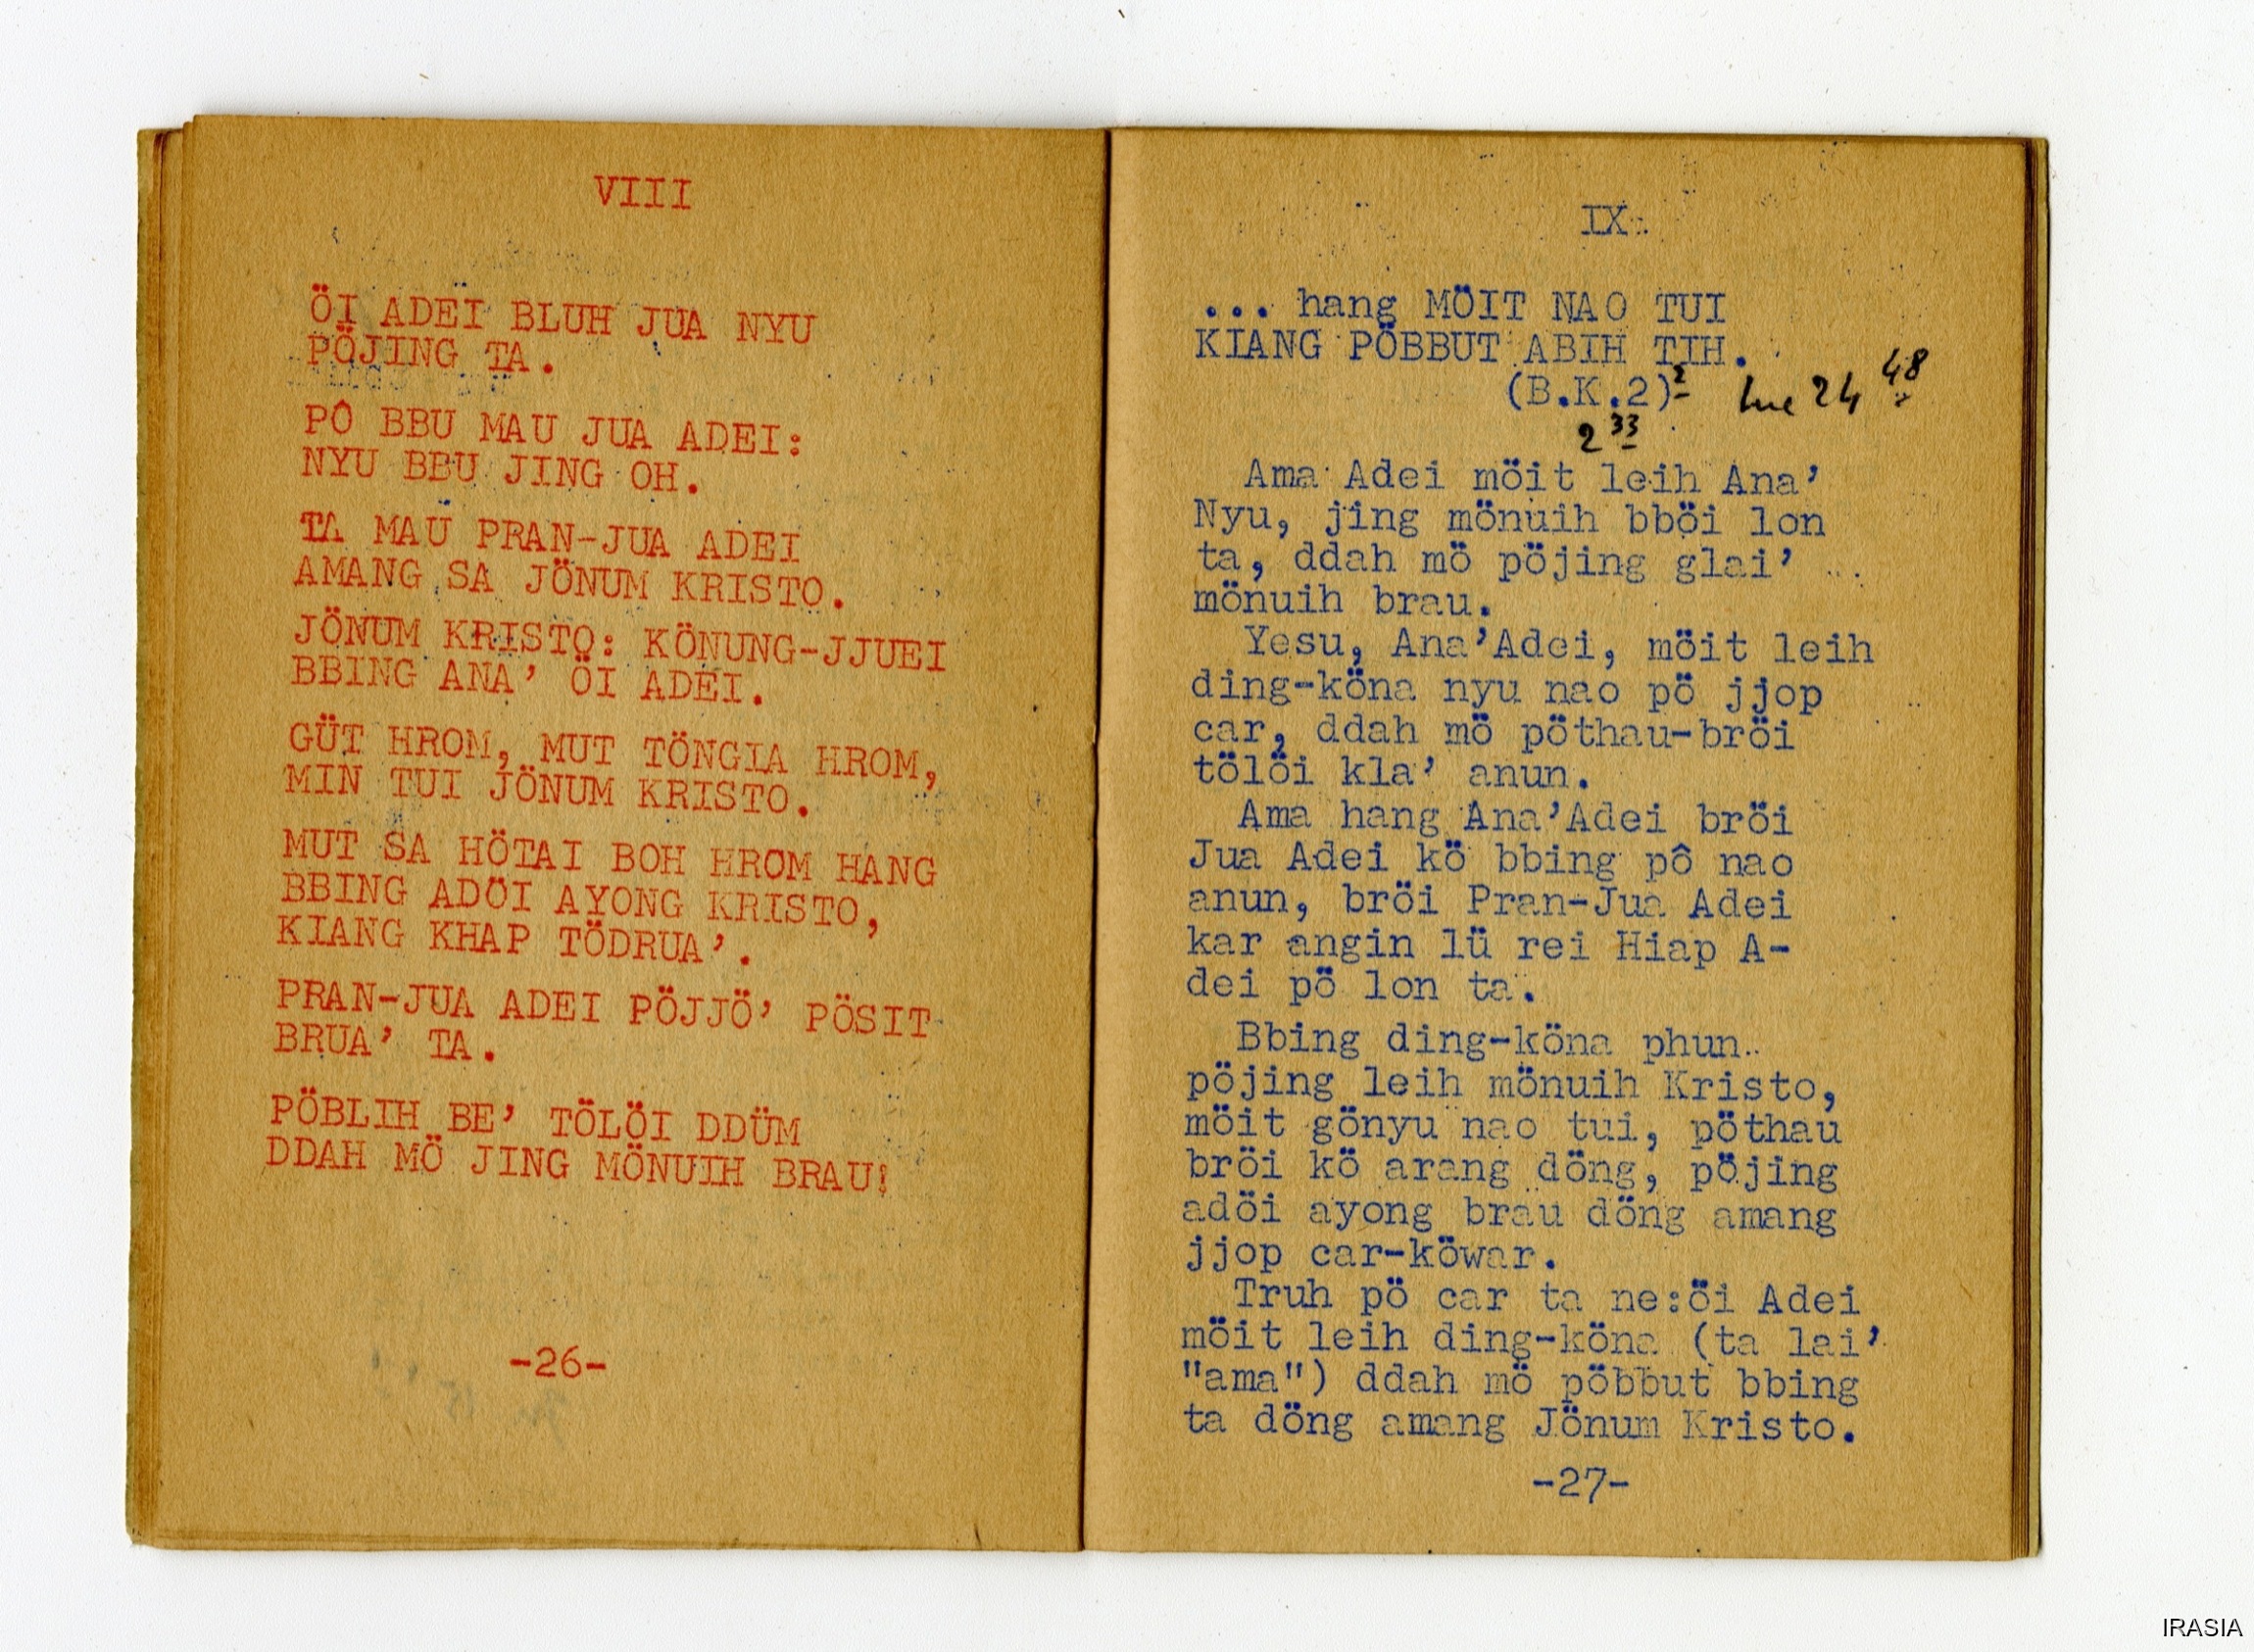 VIII
ÖI ADEI BLUH JUA NYU
PÖJING TA.
PÔ BBU MAU JUA ADEI:
NYU BBU JING OH.
TA MAU PRAN-JUA ADEI
AMANG SA JÖNUM KRISTO.
JÖNUM KRISTO: KÖNUNG-JJUEI
BBING ANA' ÖI ADEI.
GÜT HROM, MUT TÖNGIA HROM,
MIN TUI JÖNUM KRISTO.
MUT SA HÖTAI BOH HROM HANG
BBING ADÖI AYONG KRISTO,
KIANG KHAP TÖDRUA'.
PRAN-JUA ADEI PÖJJÖ' PÖSIT
BRUA' TA.
PÖBLIH BE' TÖLÖI DDÜM
DDAH MÖ JING MÖNUIH BRAU!
-26-
IX
... hang MÖIT NAO TUI
KIANG PÖBBUT ABIH TIH.
(B.K.2) 2 Luc 24 48
2 33
Ama Adei möit leih Ana'
Nyu, jing mönuih bböi lon
ta, ddah mö pöjing glai'
mönuih brau.
Yesu, Ana'Adei, möit leih
ding-köna nyu nao pö jjop
car, ddah mö pöthau-bröi
tölöi kla' anun.
Ama hang Ana'Adei bröi
Jua Adei kö bbing pô nao
anun, bröi Pran-Jua Adei
kar angin lü rei Hiap A-
dei pö lon ta.
Bbing ding-köna phun
pöjing leih mönuih Kristo,
möit gönyu nao tui, pöthau
bröi kö arang döng, pöjing
adöi ayong brau döng amang
jjop car-köwar.
Truh pö car ta ne:öi Adei
möit leih ding-köna (ta lai'
"ama") ddah mö pöbbut bbing
ta döng amang Jönum Kristo.
-27-
IRASIA